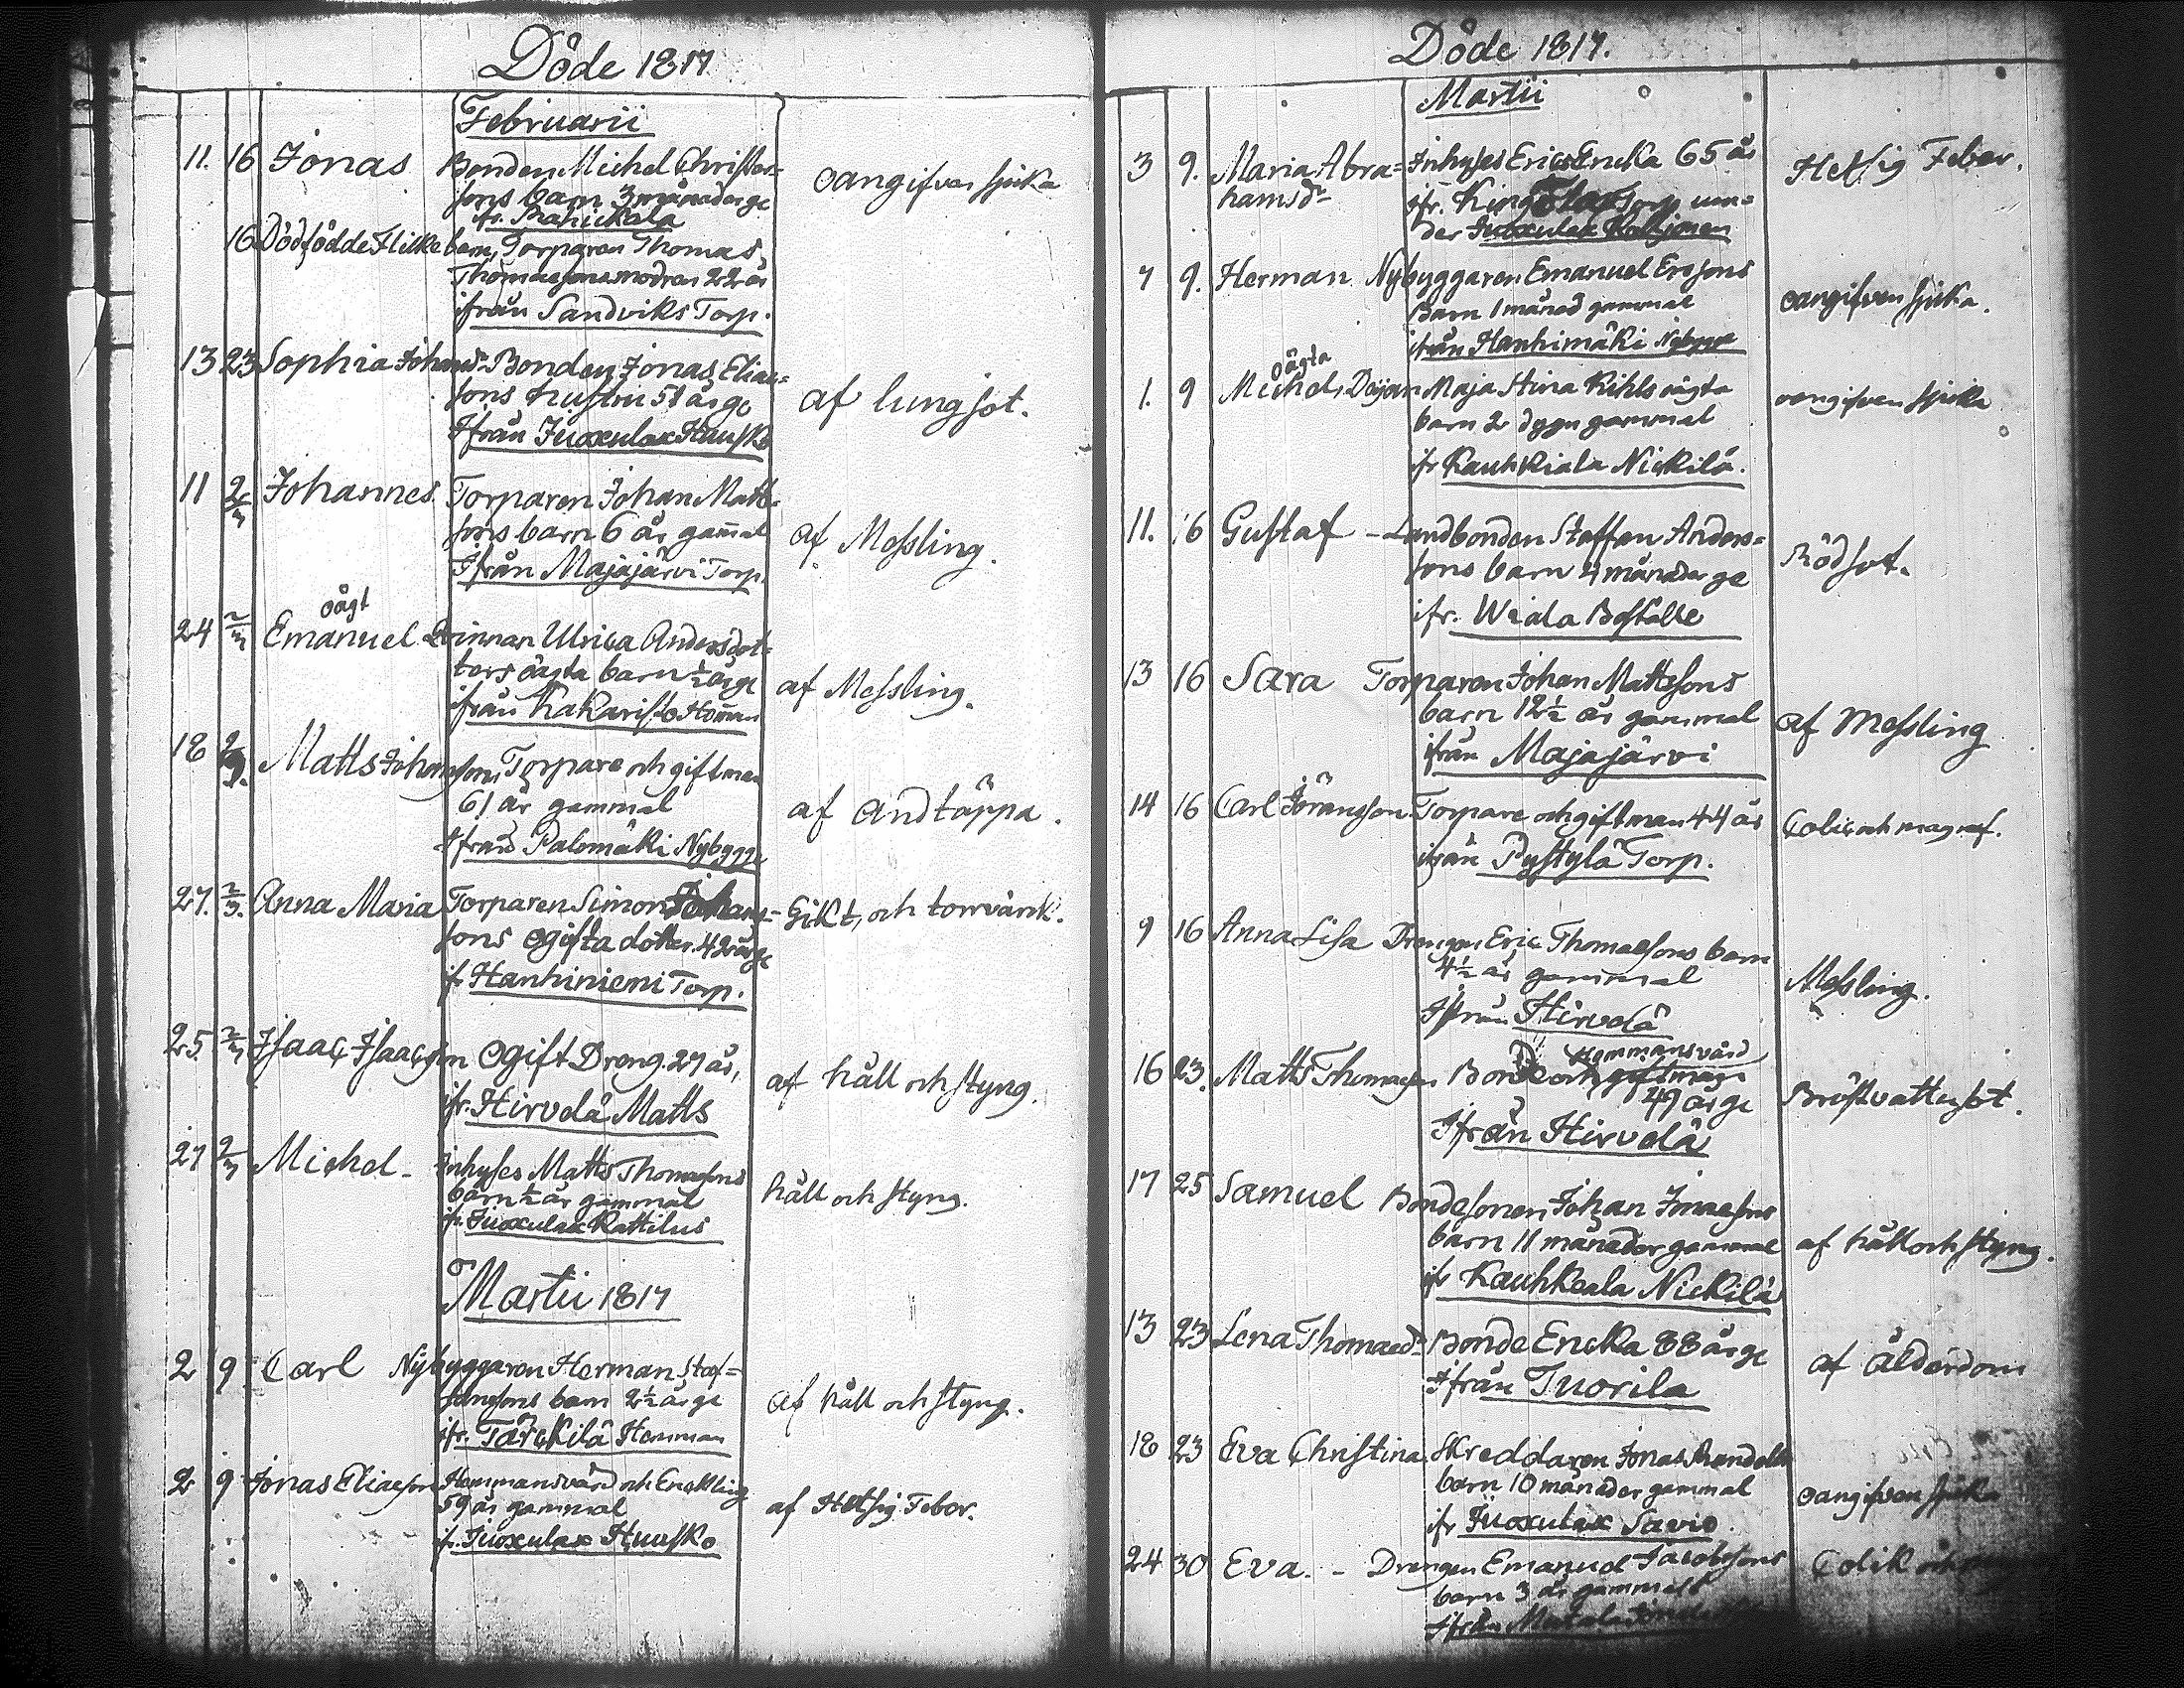 Döde 1817
Februarii
11. 16 Jonas Bonden Michel Christer=
sons barn 3 månader ge oangifven sjuka
ifr. Rahickala
16 Dödfödde Flicke barn, Torparen Thomas
Thomaesons modren 22 år
ifrån Sandviks Torp.
13 23 Sophia Johansdr Bonden Jonas Eliae=
sons hustru 51 år ge af lungsot.
Ifrån Juoxulax Huusko
11 2/3 Johannes Torparen Johan Matts=
sons barn 6 år gam̄al af Messling.
Ifrån Majajärvi Torp.
oägt
24 2/3 Emanuel Qvinnan Ulrica Andersdot=
ters oägta barn ½ år ge af Messling.
ifrån Kakaristo Hom̄an
18 2/3. Matts Johansson, Torpare och gift man
61 år gammal af andtäppa.
Ifrån Palomäki Nybygge
27. 2/3. Anna Maria Torparen Simon Johans=
sons ogifta dotter 42 år ge Gikt, och torrvärk.
if. Hanhiniemi Torp.
25 2/3 Isaac Isaacson Ogift Dreng. 27 år,
ifr. Hirvelä Matts af håll och styng.
27 2/3 Michel - Inhyses Matts Thomaesons
barn ½ år gammal håll och styng.
if. Juoxulax Rattilus
Martii 1817
2 9 Carl Nybyggaren Herman Staf=
fansons barn 2½ år ge af håll och styng.
ifr. Tärckilä Hemman
2 9 Jonas Eliaeson Hemmansvärd och Enckling
59 år gammal af Hetsig Feber.
if. Juoxulax Huusko
Döde 1817.
Martii
3 9. Maria Abra= Inhyses Erics Encka 65 år Hetsig Feber.
hamsdr ifr. Torp un=
der Juoxulax
7 9. Herman Nybyggaren Emanuel Ersons
Barn 1 månad gammal oangifven sjuka.
ifrån Hanhimäki Nybygge
oägta
1. 9 Michel, Deijan Maja Stina Kihls oägta oangifven sjuka
barn 2 dygn gammal
ifr Kauhkiala Nickilä.
11. 16 Gustaf - Landbonden Staffan Anders=
sons barn 4 månader ge Rödsot.
ifr. Wiala Boställe
13 16 Sara Torparen Johan Mattsons
barn 12½ år gammal af Messling
ifrån Majajärvi
14 16 Carl Jöransson Torpare och gift man 44 år Colic och magref.
ifrån Pystylä Torp.
9 16 Anna Lisa Drengen Eric Thomaesons barn
4½ år gammal Messling.
Ifrån Hirvelä
Hemmansvärd
16 23. Matts Thomaeson Bonde och gift man
49 år ge Bröstvattusot.
Ifrån Hirvelä
17 25 Samuel Bondesonen Johan Jonaesons
barn 11 månader gammal af håll och styng.
ifr Kauhkeala Nickilä
13 23 Lena Thomaedr Bonde Encka 88 år ge af ålderdom
Ifrån Tuorila
18 23 Eva Christina Skreddaren Jonas Randelin
barn 10 månader gammal oangifven sjuka
ifr Juoxulax Savio.
24 30 Eva. - Drengen Emanuel Jacobsons Colik och
barn 3 år gammalt
Ifrån